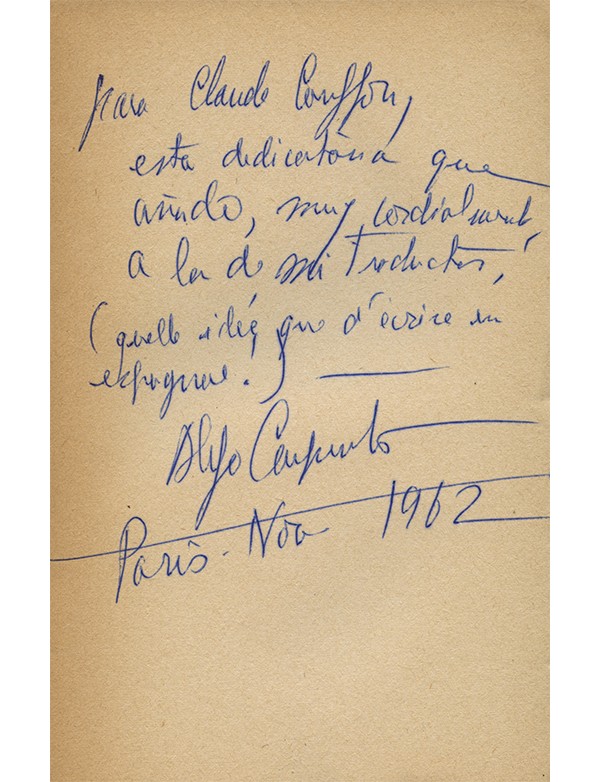 para Claude Couffon,
esta dedicatoria que
añado, muy cordialmente,
a la de mi traductor,
(quelle idée que d'écrire en
espagnol.)
Alejo Carpentier
Paris - Nov 1962